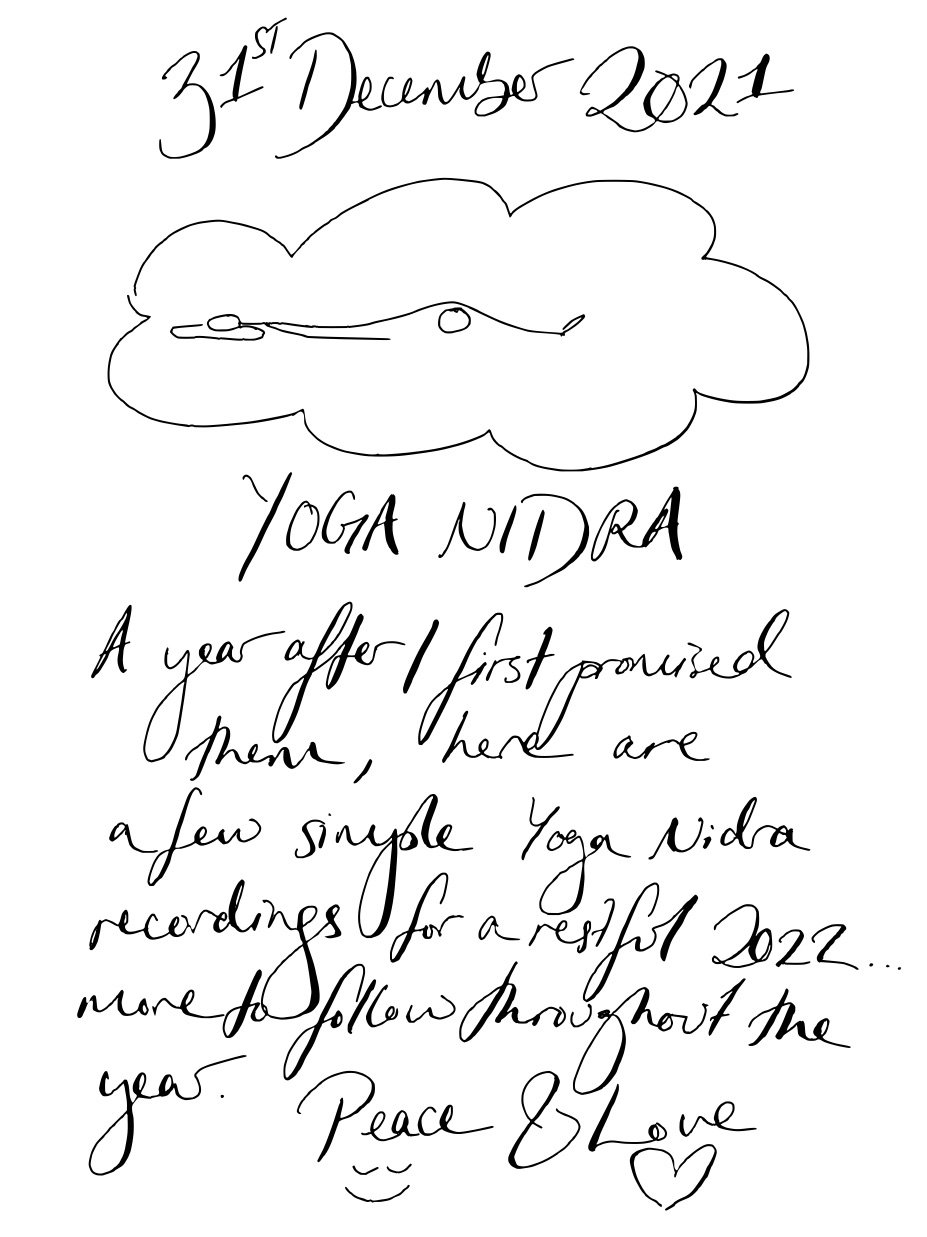 31ST December 2021
YOGA NIDRA
A year after I first promised
them, here are
a few simple Yoga Nidra
recordings for a restful 2022...
more to follow throughout the
year.
Peace & Love